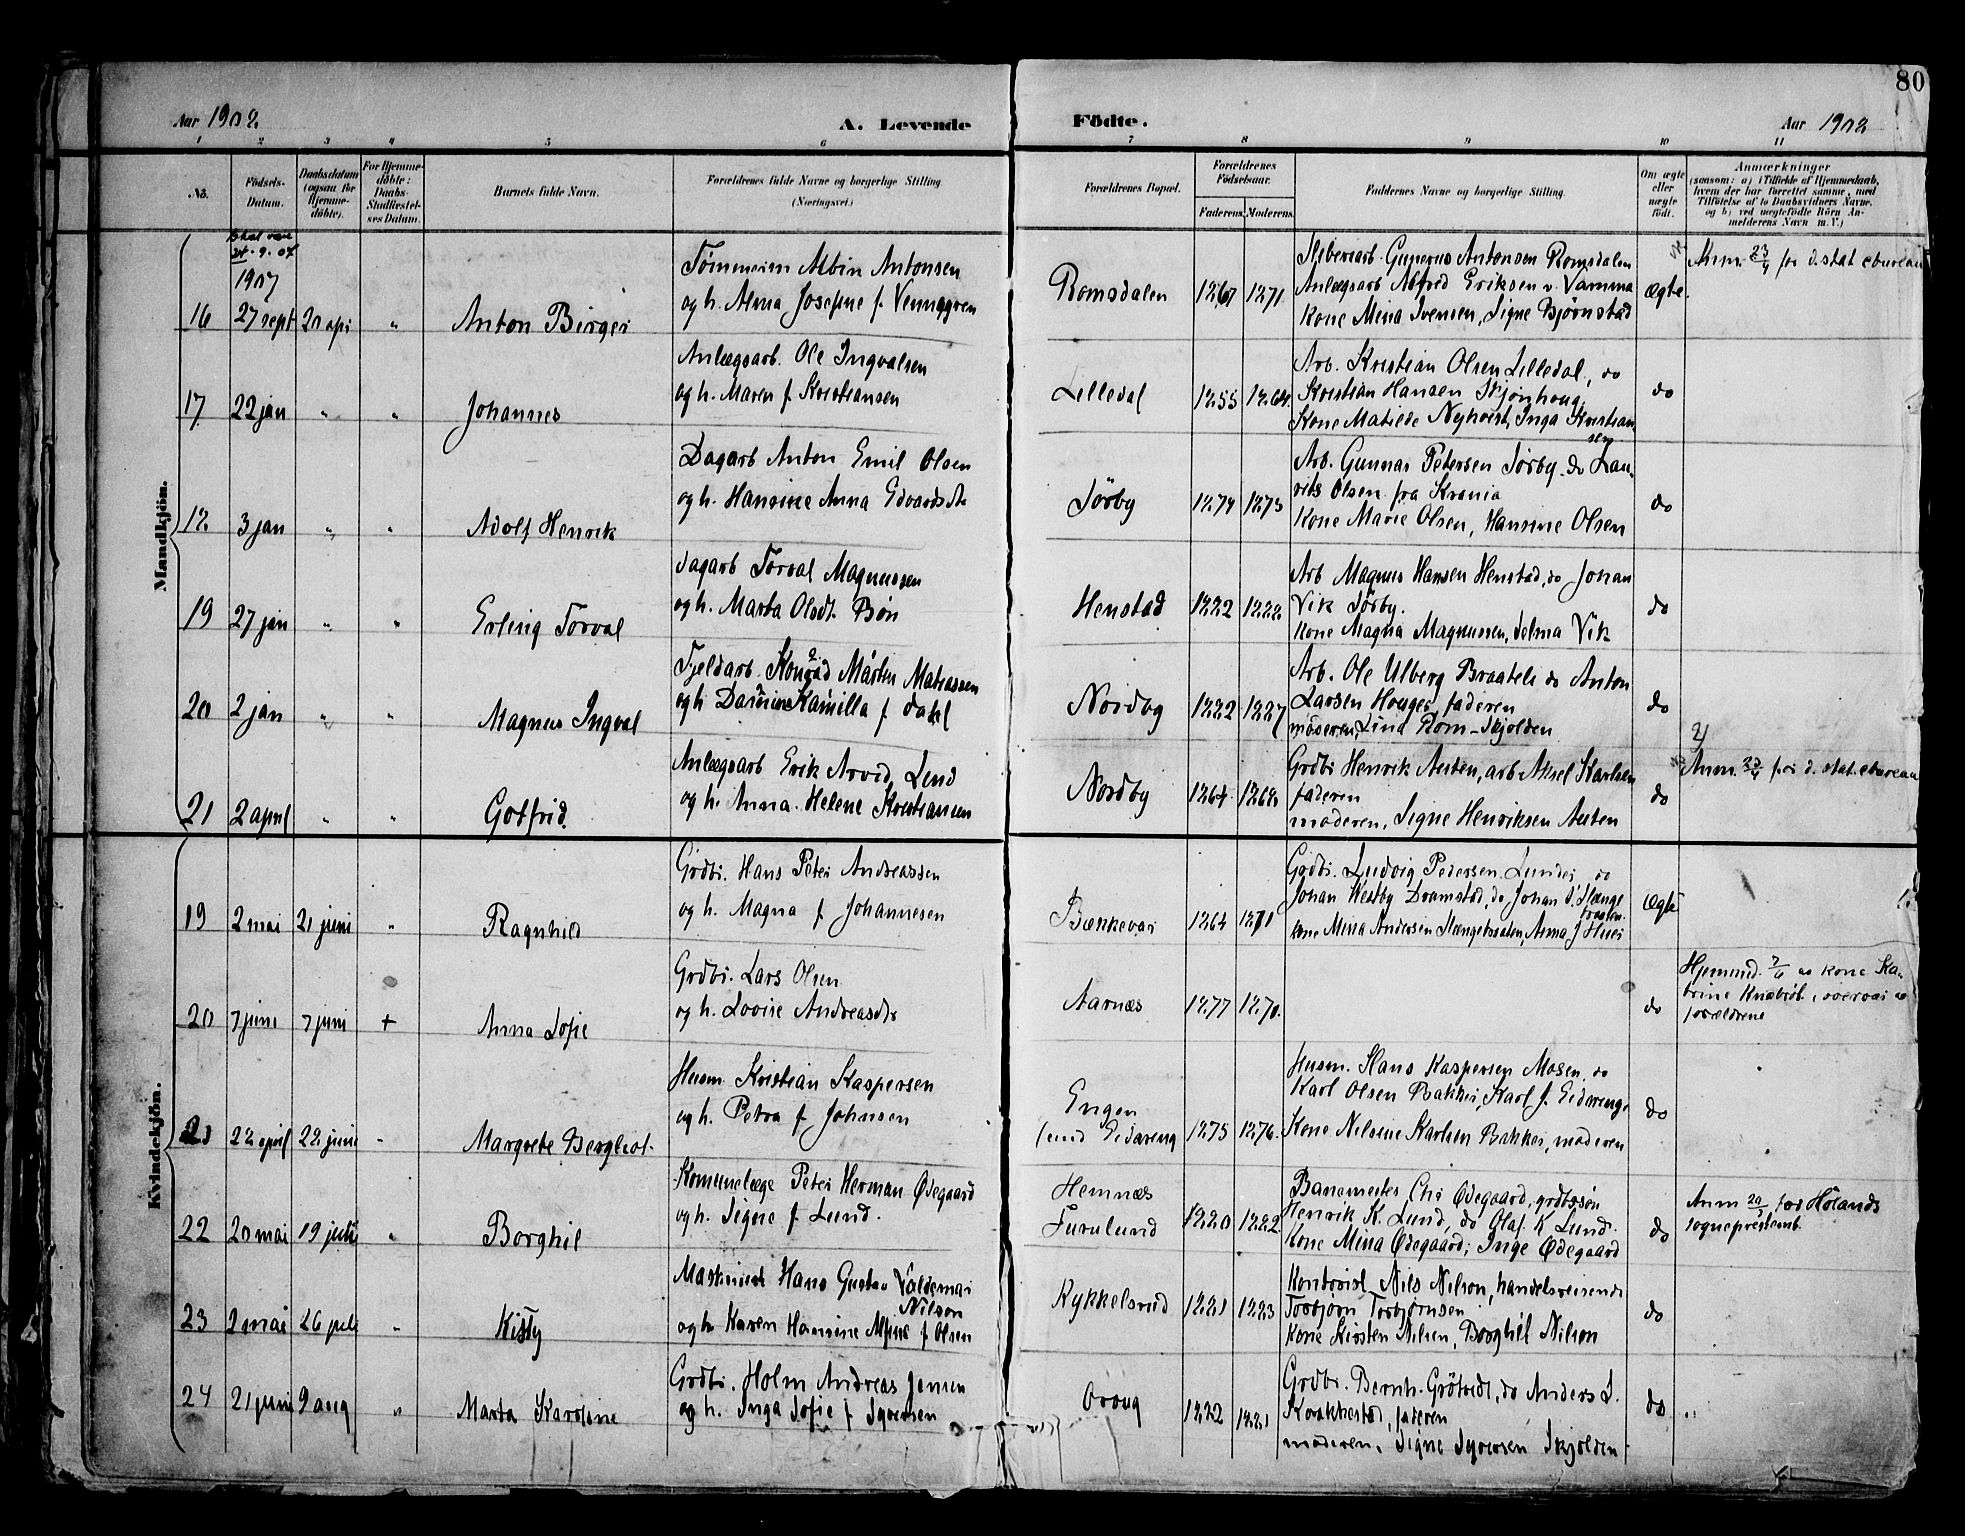 80
Aar 1908. A. Levende Födte. Aar 1908
1 2 3 4 5 6 7 8 9 10 11
No. Födsels-Datum. Daabsdatum (ogsaa for Hjemme-döbte). For Hjemme-döbte: Daabs-Stadfæstel-ses Datum. Barnets fulde Navn. Forældrenes fulde Navne og borgerlige Stilling (Næringsvei.) Forældrenes Bopæl. Forældrenes Födselsaar. Faderens. Moderens. Faddernes Navne og borgerlig Stilling. Om ægte eller uægte födt. Anmærkninger
(saasom: a) i Tilfælde af Hjemmedaab,
hvem der har forrettet samme, med
Tilföielse af to Daabsvidners Navne.
og b) ved uægtefödte Börn An-
melderens Navn m. V.)
Mandkjön.
skal være
24-9-07
1907
16 27 sept 20 apr " Anton Birger
Tømmerm Albin Antonsen
og h. Alma Josefine f. Vennegren
Romsdalen 1867 1871
Sliberiarb. Gunerius Antonsen Romsdalen
Anlægsarb Alfred Eriksen v. Vamma
Kone Mina Svensen, Signe Bjørnstad
ægte.
Anm. 23/4 for d. stat. cbureau
17 22 jan " " Johannes
Anlægsarb. Ole Ingvalsen
og h. Maren f. Kristiansen
Lilledal 1855 1864
Arb. Kristian Olsen Lilledal, do
Kristian Hansen Skjønhoug
Kone Matilde Nykvist, Inga Kristian
sen
do
18 3 jan " " Adolf Henrik
Dagarb Anton Emil Olsen
og h. Hansine Anna Edvardsdt
Sørby 1874 1873
Arb. Gunnar Petersen Sørby. do Lau-
rits Olsen fra Krania
Kone Marie Olsen, Hansine Olsen
do
19 27 jan " " Erling Torval
dagarb Torval Magnussen
og h. Marta Olsdt. Bøn
Henstad 1882 1888
Arb Magnus Hansen Henstad, do Johan
Vik Sørby.
Kone Magna Magnussen, Selma Vik
do
20 2 jan " " Magnus Ingval
Fjeldarb. Konrad Mårten Matiassen
og h Kamilla f. Dahl
Nordby 1882 1887
Arb. Ole Ulberg Bragteli do Anton
Larsen Houger, faderen
moderen, Lina Rom-Skjolden
do
21 2 april " " Gotfrid.
Anlægsarb Erik Arvid Lind
og h. Anna Helene Kristiansen
Nordby 1864 1868
Grdbr Henrik Austen, arb Aksel Karlsen
faderen
moderen, Signe Henriksen Austen
do
Anm. 23/4 for d. stat. cbureau
Kvindekjön.
19 2 mai 21 juni " Ragnhild
Grdbr. Hans Peter Andreassen
og h. Magna f. Johannesen
Bækkevar 1864 1871
Grdbr. Ludvig Pedersen Lunder do
Johan Westby Dramstad, do Johan J. Slænge
braaten
Kone Mina Andersen Slængebraaten, Anna J Huer
Ægte
20 7 juni 7 juni + Anna Sofie
Grdbr. Lars Olsen
og h. Lovise Andreasdtr
Aarnæs 1877 1870.
do
Hjemmed. 7/6 av kone Ka-
trine Knabrøt, overvær av
forældrene
21 22 april 28 juni " Margrete Bergliot.
Husm. Kristian Kaspersen
og h. Petra f. Johnsen
Engen
und Eidareng 1875 1876.
Husm. Hans Kaspersen Mosen. do
Karl Olsen Bakker, Karl J. Eidareng.
Kone Nilsine Karlsen Bakker, moderen
do
22 20 mai 19 juli " Borghil
Komunelæge Peter Herman Ødegaard
og h. Signe f. Lund.
Hemnæs
Furulund 1880 1882.
Banemester Chr Ødegaard, grdbrsøn
Henrik K. Lund, do Olaf K Lund.
Kone Mina Ødegaard, Inge Ødegaard
do
Anm for Hølands
sogneprestemb.
23 2 mai 26 juli " Kitty
Maskinist Hans Gustav Valdemar
Nilson
og h Karen Hansine Alfine f. Olsen
Kykkelsrud 1881 1883
Kontorist Nils Nilson, handelsreisende
Torbjørn Torbjørnsen
Kone Kirsten Nilsen, Borghil Nilson
do
24 21 juni 9 aug " Marta Karoline
Grdbr. Holm Andreas Jensen
og h. Inga Sofie f. Syversen
Oroug 1882 1881
Grdbr. Bernh. Grøtvedt, do Anders L.
Krakkestad, faderen
moderen, Signe Syversen Skjolden.
do